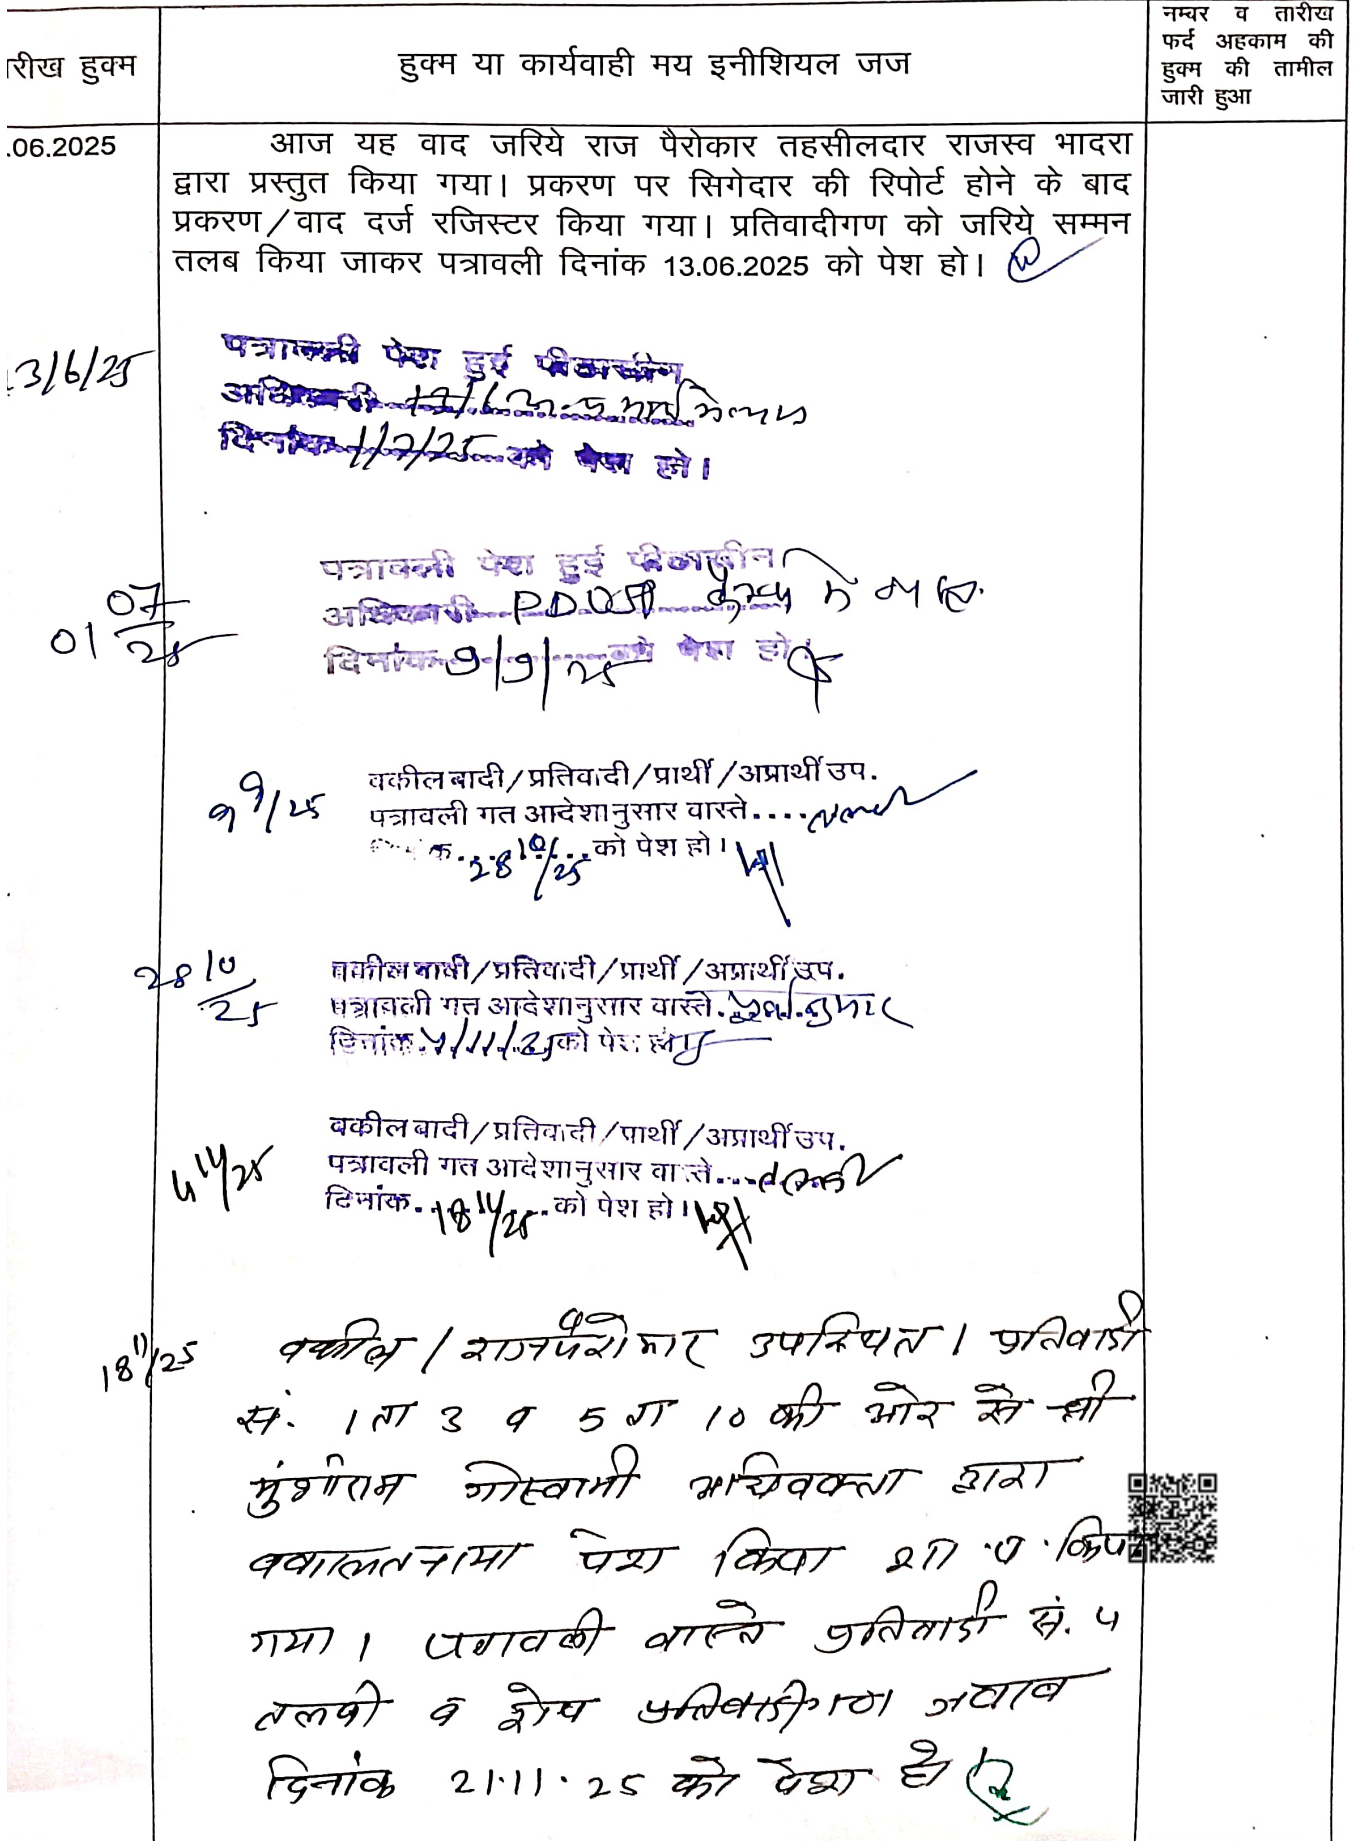 रीख हुक्म
हुक्म या कार्यवाही मय इनीशियल जज
नम्वर व तारीख
फर्द अहकाम की
हुक्म की तामील
जारी हुआ
.06.2025
आज यह वाद जरिये राज पैरोकार तहसीलदार राजस्व भादरा
द्वारा प्रस्तुत किया गया। प्रकरण पर सिगेदार की रिपोर्ट होने के बाद
प्रकरण/वाद दर्ज रजिस्टर किया गया। प्रतिवादीगण को जरिये सम्मन
तलब किया जाकर पत्रावली दिनांक 13.06.2025 को पेश हो।
13/6/25
पत्रावली पेश हुई पीठासीन
अधिकारी
दिनांक 1/7/25 को पेश हो।
01 07/25
पत्रावली पेश हुई पीठासीन
अधिकारी PDUSP कैम्प में
दिनांक 9/9/25 को पेश हो
9 9/25
वकील बादी/प्रतिवादी/प्रार्थी/अप्रार्थी उप.
पत्रावली गत आदेशानुसार वास्ते.... तलबी
क...28 10/25 को पेश हो।
28 10/25
वकील बादी/प्रतिवादी/प्रार्थी/अप्रार्थी उप.
पत्रावली गत आदेशानुसार वास्ते.
दिनांक 4/11/25 को पेश हो
4 11/25
वकील बादी/प्रतिवादी/प्रार्थी/अप्रार्थी उप.
पत्रावली गत आदेशानुसार वास्ते.... तलबी
दिनांक..18 11/25..को पेश हो।
18 11/25
वकील / राजपैरोकार उपस्थित। प्रतिवादी
सं. 1 ता 3 व 5 ता 10 की ओर से श्री
मुंशीराम गोस्वामी अधिवक्ता द्वारा
वकालतनामा पेश किया शा.प. किया
गया। पत्रावली वास्ते प्रतिवादी सं. 4
तलबी व शेष प्रतिवादीगण जवाब
दिनांक 21.11.25 को पेश हो